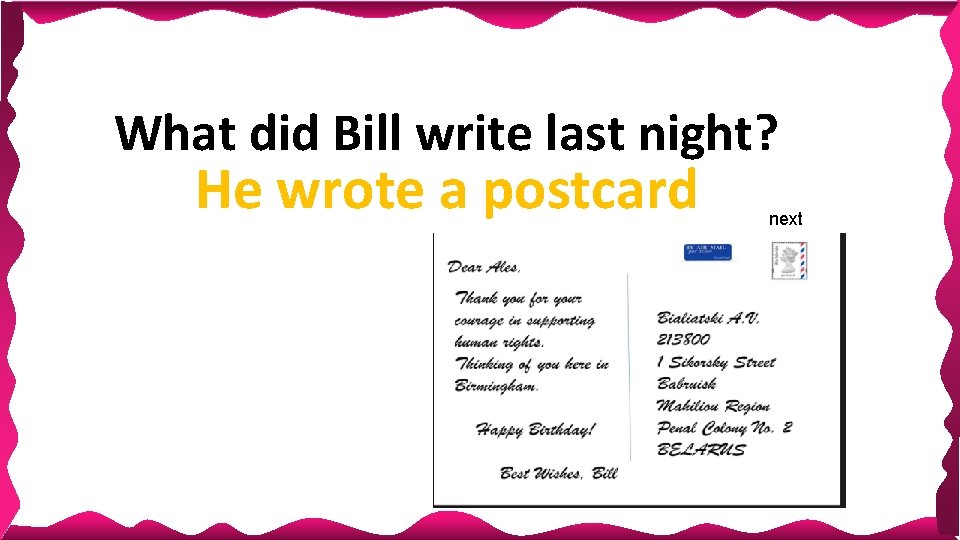 What did Bill write last night?
He wrote a postcard
next
BY AIR MAIL
par avion
Dear Ales,
Thank you for your
courage in supporting
human rights.
Thinking of you here in
Birmingham.
Happy Birthday!
Best Wishes, Bill
Bialiatski A.V.
213800
1 Sikorsky Street
Babruisk
Mahiliou Region
Penal Colony No. 2
BELARUS